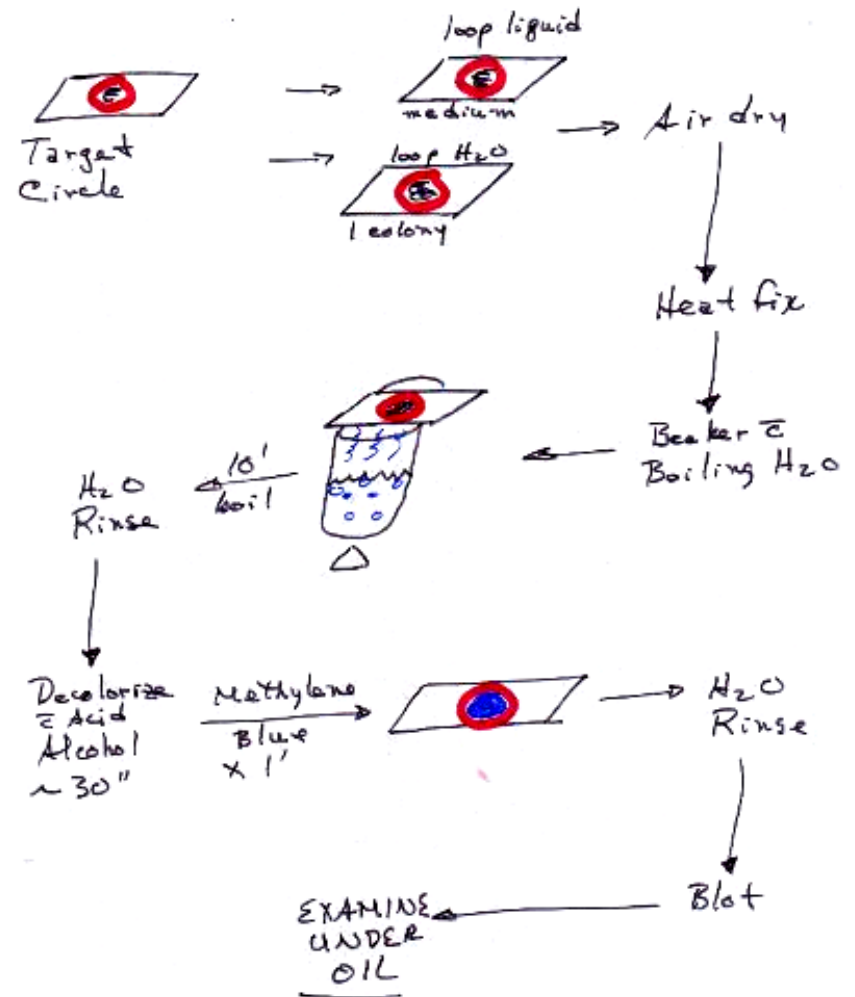 Target
Circle
loop liquid
medium
loop H₂O
1 colony
Air dry
Heat fix
Beaker c̄
Boiling H₂O
10'
boil
H₂O
Rinse
Decolorize
c̄ Acid
Alcohol
~ 30"
Methylene
Blue
x 1'
H₂O
Rinse
Blot
EXAMINE
UNDER
OIL